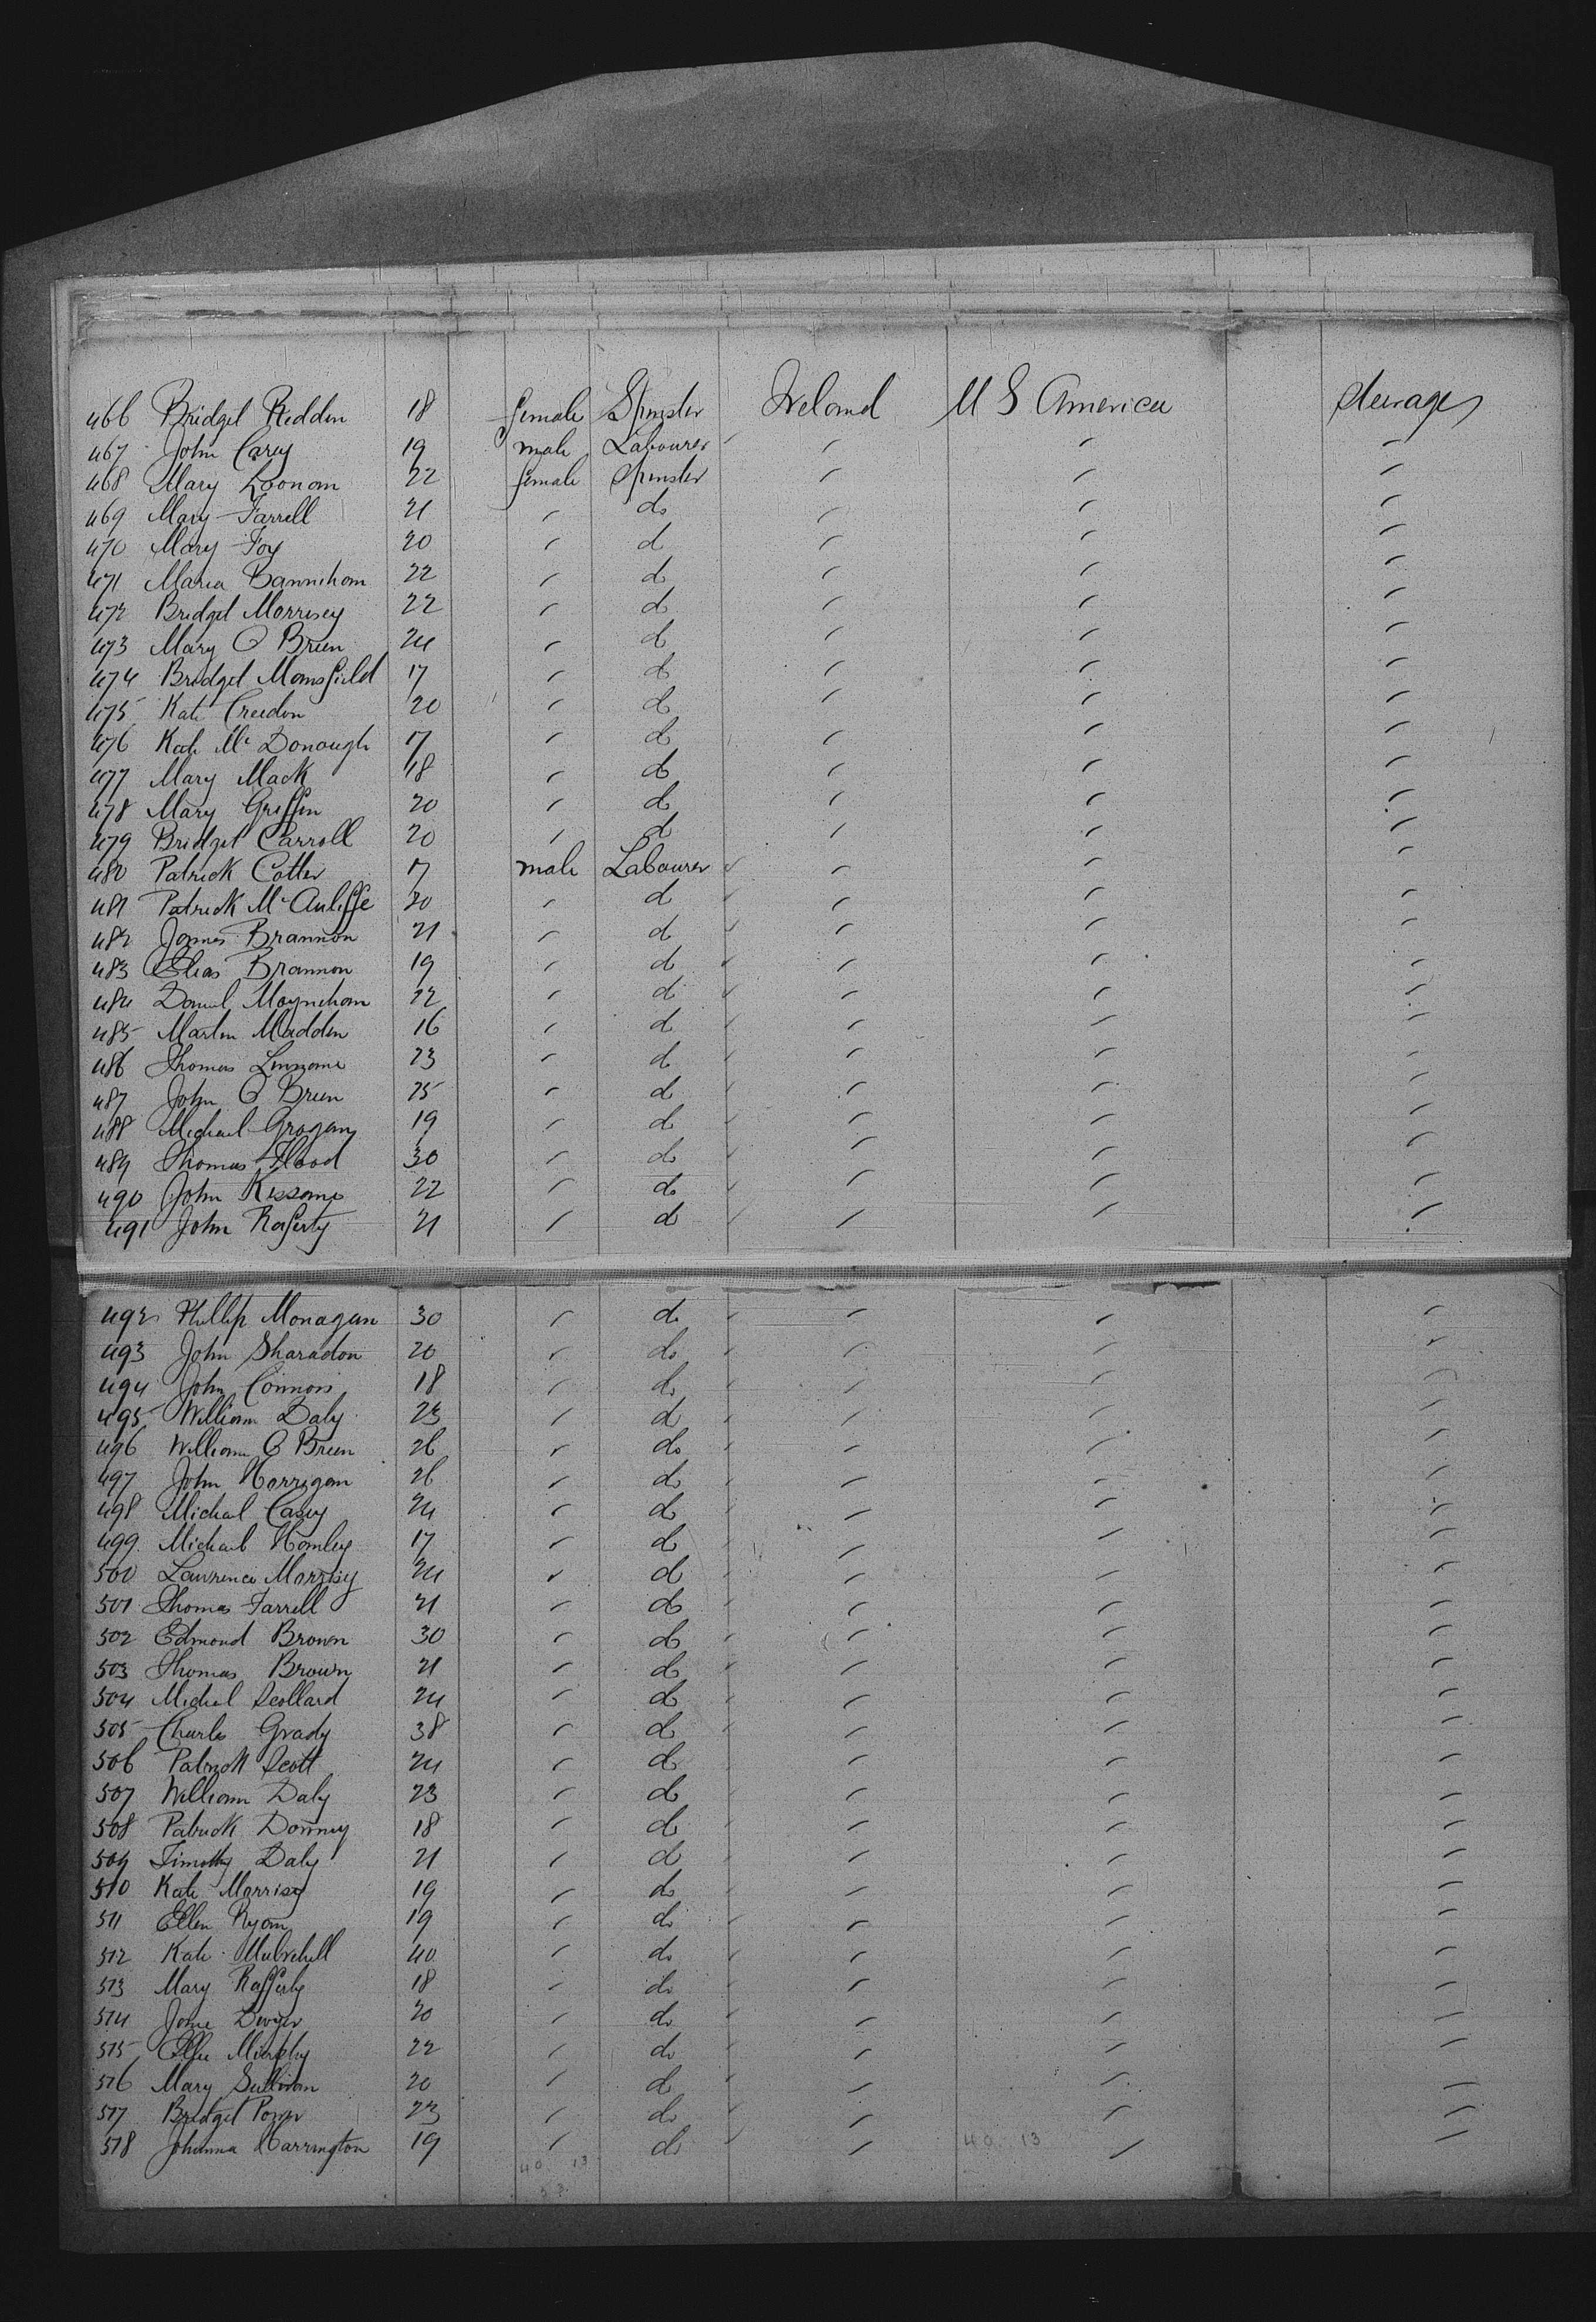 466 Bridget Redden 18 female Spinster Ireland U S America Steerage
467 John Carey 19 male Labourer " " "
468 Mary Loonam 22 female Spinster " " "
469 Mary Farrell 21 " do " " "
470 Mary Foy 20 " do " " "
471 Maria Bannihan 22 " do " " "
472 Bridget Morrisey 22 " do " " "
473 Mary O Brien 24 " do " " "
474 Bridget Mansfield 17 " do " " "
475 Kate Creedon 20 " do " " "
476 Kate Mc Donough 17 " do " " "
477 Mary Mack 18 " do " " "
478 Mary Griffin 20 " do " " "
479 Bridget Carroll 20 " do " " "
480 Patrick Cotter 17 male Labourer " " "
481 Patrick Mc Auliffe 20 " do " " "
482 James Brannon 21 " do " " "
483 Elias Brannon 19 " do " " "
484 Daniel Moynihan 22 " do " " "
485 Martin Madden 16 " do " " "
486 Thomas 23 " do " " "
487 John O Brien 25 " do " " "
488 Michael Grogan 19 " do " " "
489 Thomas Flood 30 " do " " "
490 John Kissane 22 " do " " "
491 John Raferty 21 " do " " "
492 Phillip Monagan 30 " do " " "
493 John Sharadon 20 " do " " "
494 John Connors 18 " do " " "
495 William Daly 23 " do " " "
496 William O Brien 26 " do " " "
497 John Horrigan 26 " do " " "
498 Michael Casey 24 " do " " "
499 Michael Hanley 17 " do " " "
500 Lawrence Morrisy 24 " do " " "
501 Thomas Farrell 21 " do " " "
502 Edmond Brown 30 " do " " "
503 Thomas Brown 21 " do " " "
504 Michael Scollard 24 " do " " "
505 Charles Grady 38 " do " " "
506 Patrick Scott 24 " do " " "
507 William Daly 23 " do " " "
508 Patrick Downey 18 " do " " "
509 Timothy Daly 21 " do " " "
510 Kate Morrisy 19 " do " " "
511 Ellen Ryan 19 " do " " "
512 Kate Mulvehill 40 " do " " "
513 Mary Rafferty 18 " do " " "
514 Jane Dwyer 20 " do " " "
515 Effie Murphy 22 " do " " "
516 Mary Sullivan 20 " do " " "
517 Bridget Power 23 " do " " "
518 Johanna Harrington 19 " do " " "
40 13 40 13